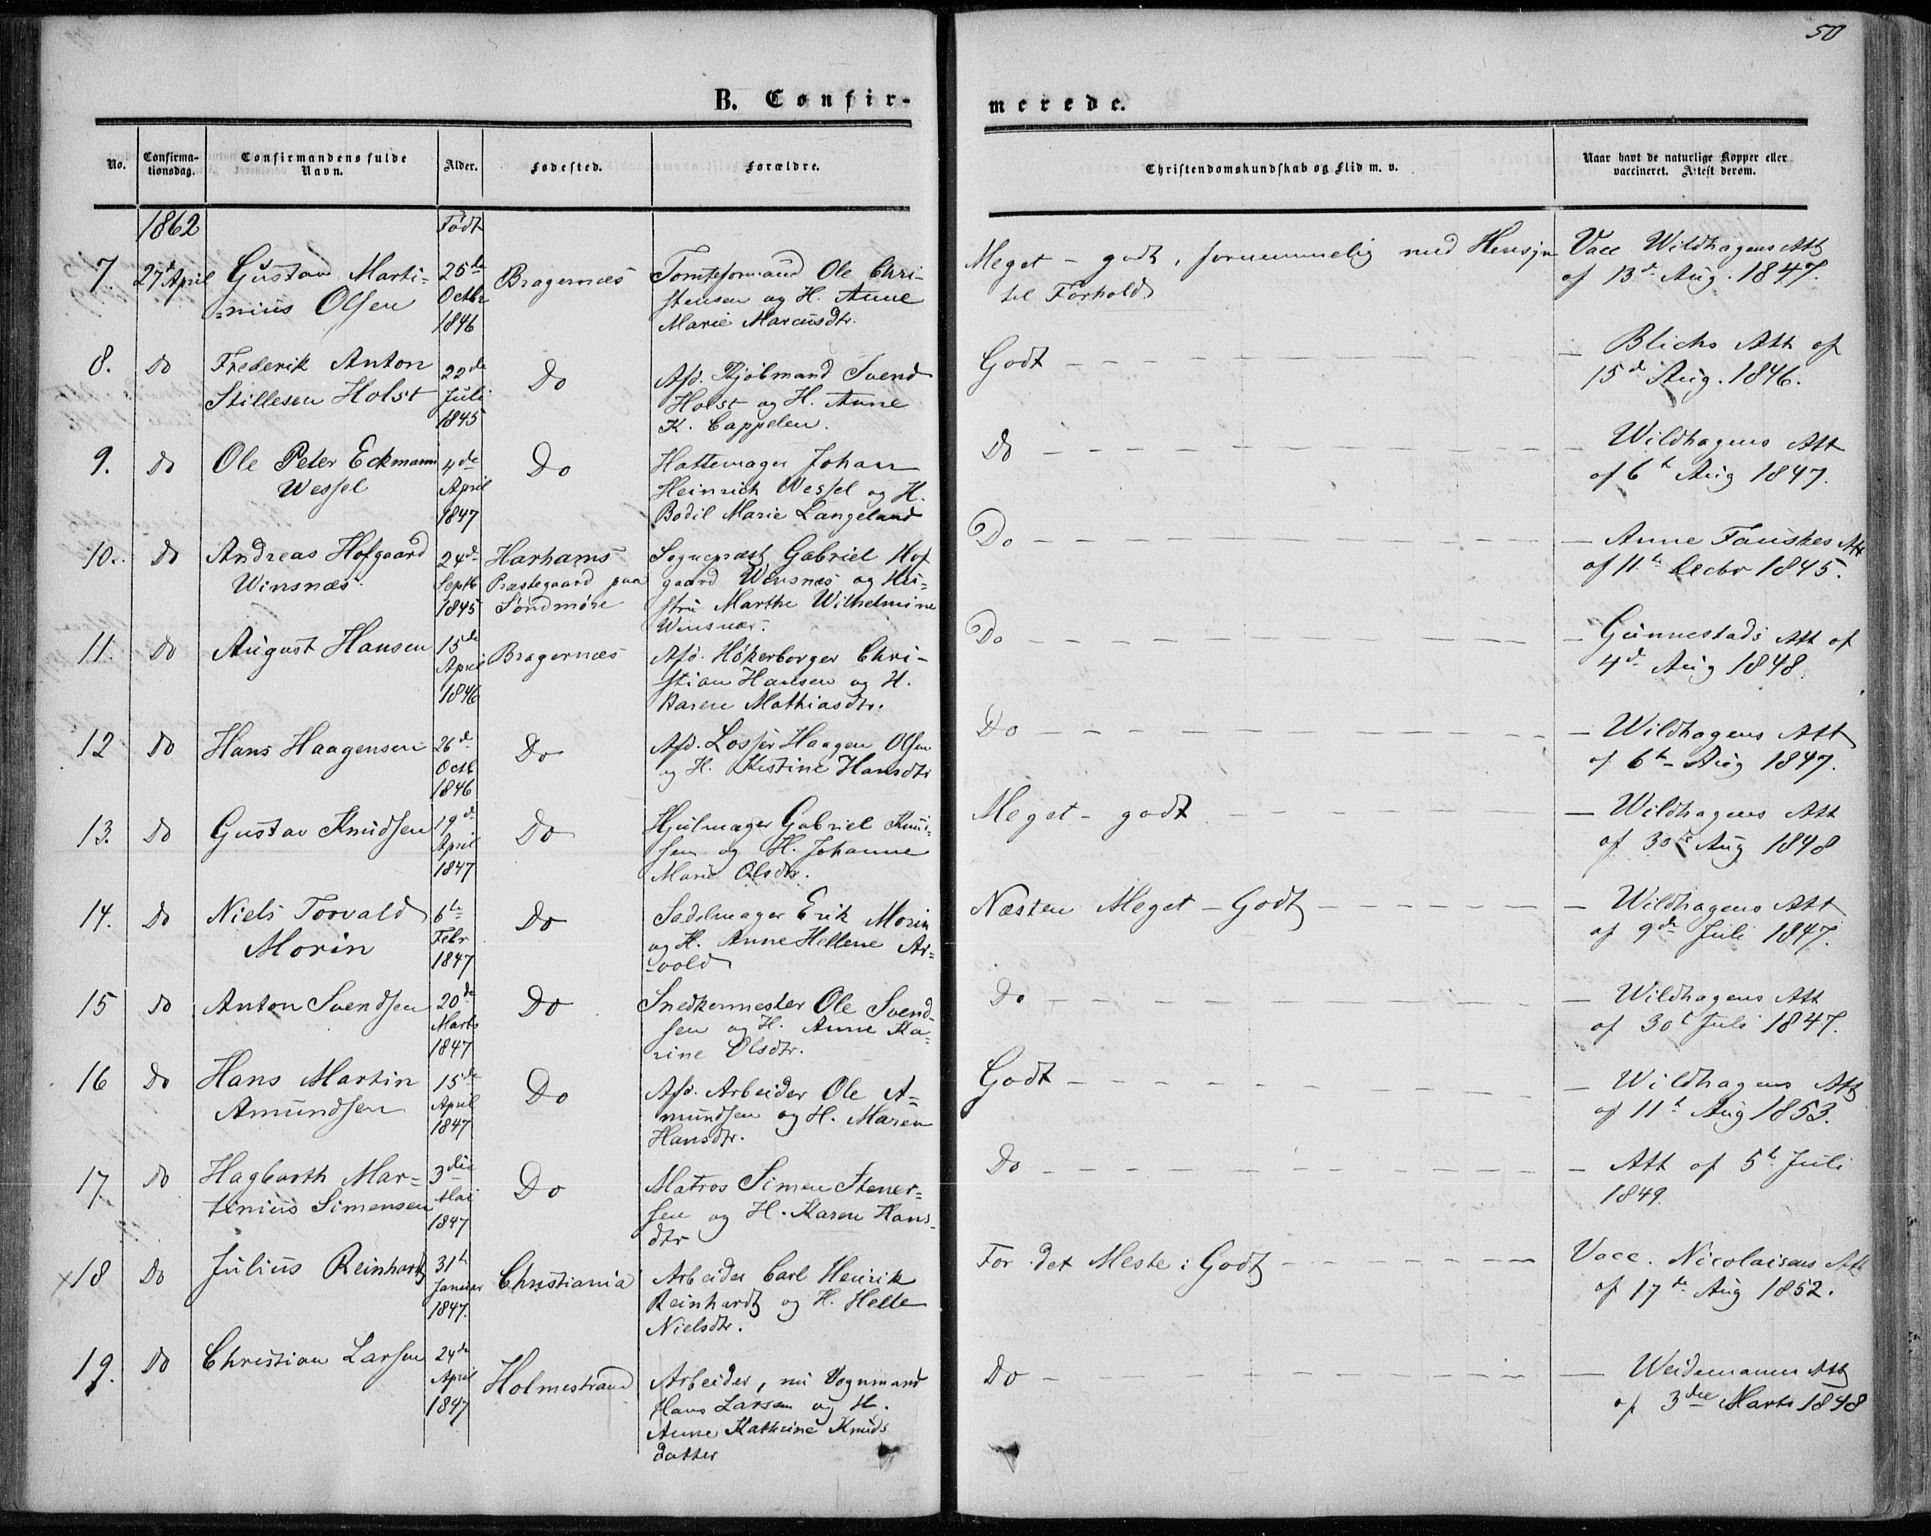 50
B. Confirmerede.
No.
Confirma-
tionsdag.
Confirmandens fulde
Navn.
Alder.
Fødested.
Forældre.
Christendomskundskab og Flid m. v.
Naar havt de naturlige Kopper eller
vaccineret. Attest derom.
1862
Født
7.
27d April
Gustav Marti-
=nius Olsen
25de
Octbr
1846
Bragernæs
Tomteformand Ole Chri-
stensen og H. Anne
Marie Marcusdtr.
Meget - godt, fornemmelig med Hensyn
til Forhold
Vacc Wildhagens Att
af 13de Aug. 1847.
8.
Do
Frederik Anton
Stillesen Holst
22de
Juli
1845
Do
Afd. Svend
Holst og H. Anne
K. Cappelen.
Godt
Blichs Att af
15de Aug. 1846.
9.
Do
Ole Peter Eckmann
Wessel
4de
April
1847
Do
Hattemager Johan
Heinrich Wessel og H.
Bodil Marie Langeland
Do
Wildhagens Att
af 6t Aug 1847.
10.
Do
Andreas Hofgaard
Winsnæs
24d
Septb
1845
Harhams
Præstegaard paa
Søndmøre
Sognepræst Gabriel Hof
gaard Winsnæs og Hu-
stru Marthe Wilhelmine
Winsnæs.
Do
Anne Fauskes Att
af 11te Decbr 1845.
11.
Do
August Hansen
15de
April
1846
Bragernæs
Afd. Høkerborger Chri-
stian Hansen og H.
Karen Mathiasdtr.
Do
Gunnestads Att af
4de Aug 1848.
12
Do
Hans Haagensen
26d.
Octb
1846
Do
Afd. Losser Haagen Olsen
og H. Kistine Hansdtr
Do
Wildhagens Att
af 6t Aug 1847.
13.
Do
Gustav Knudsen
19d
April
1847
Do
Hjulmager Gabriel Knu-
sen og H. Johanne
Marie Olsdtr.
Meget - godt
Wildhagens Att
af 30te Aug 1848
14.
Do
Niels Torvald
Morin
6te
Febr
1847
Do
Sadelmager Erik Morin
og H. Anne Hellene Ar=
=vold
Næsten Meget - Godt
Wildhagens Att
af 9de Juli 1847.
15
Do
Anton Svendsen
20de
Marts
1847
Do
Snedkermester Ole Svend-
sen og H. Anne Ka-
rine Olsdtr.
Do
Wildhagens Att
af 30t Juli 1847.
16
Do
Hans Martin
Amundsen
15de
April
1847
Do
Afd. Arbeider Ole A=
mundsen og H. Maren
Hansdtr.
Godt
Wildhagens Att
af 11te Aug 1853.
17
Do
Hagbarth Mar-
tinius Simensen
3die
Mai
1847
Do
Matros Simen Stener-
sen og H. Karen Hans-
dtr
Do
Att af 5t Juli
1849.
x18
Do
Julius Reinhardt
31te
Januar
1847.
Christiania
Arbeider Carl Henrik
Reinhardt og H. Helle
Nielsdtr.
For det Meste: Godt
Vacc. Nicolaisens Att
af 17de Aug 1852.
19.
Do
Christian Larsen
24de
April
1847
Holmestrand
Arbeider, nu Vognmand
Hans Larsen og H.
Anne Kathrine Knuds
datter
Do
Weidemanns Att
af 3die Marts 1848